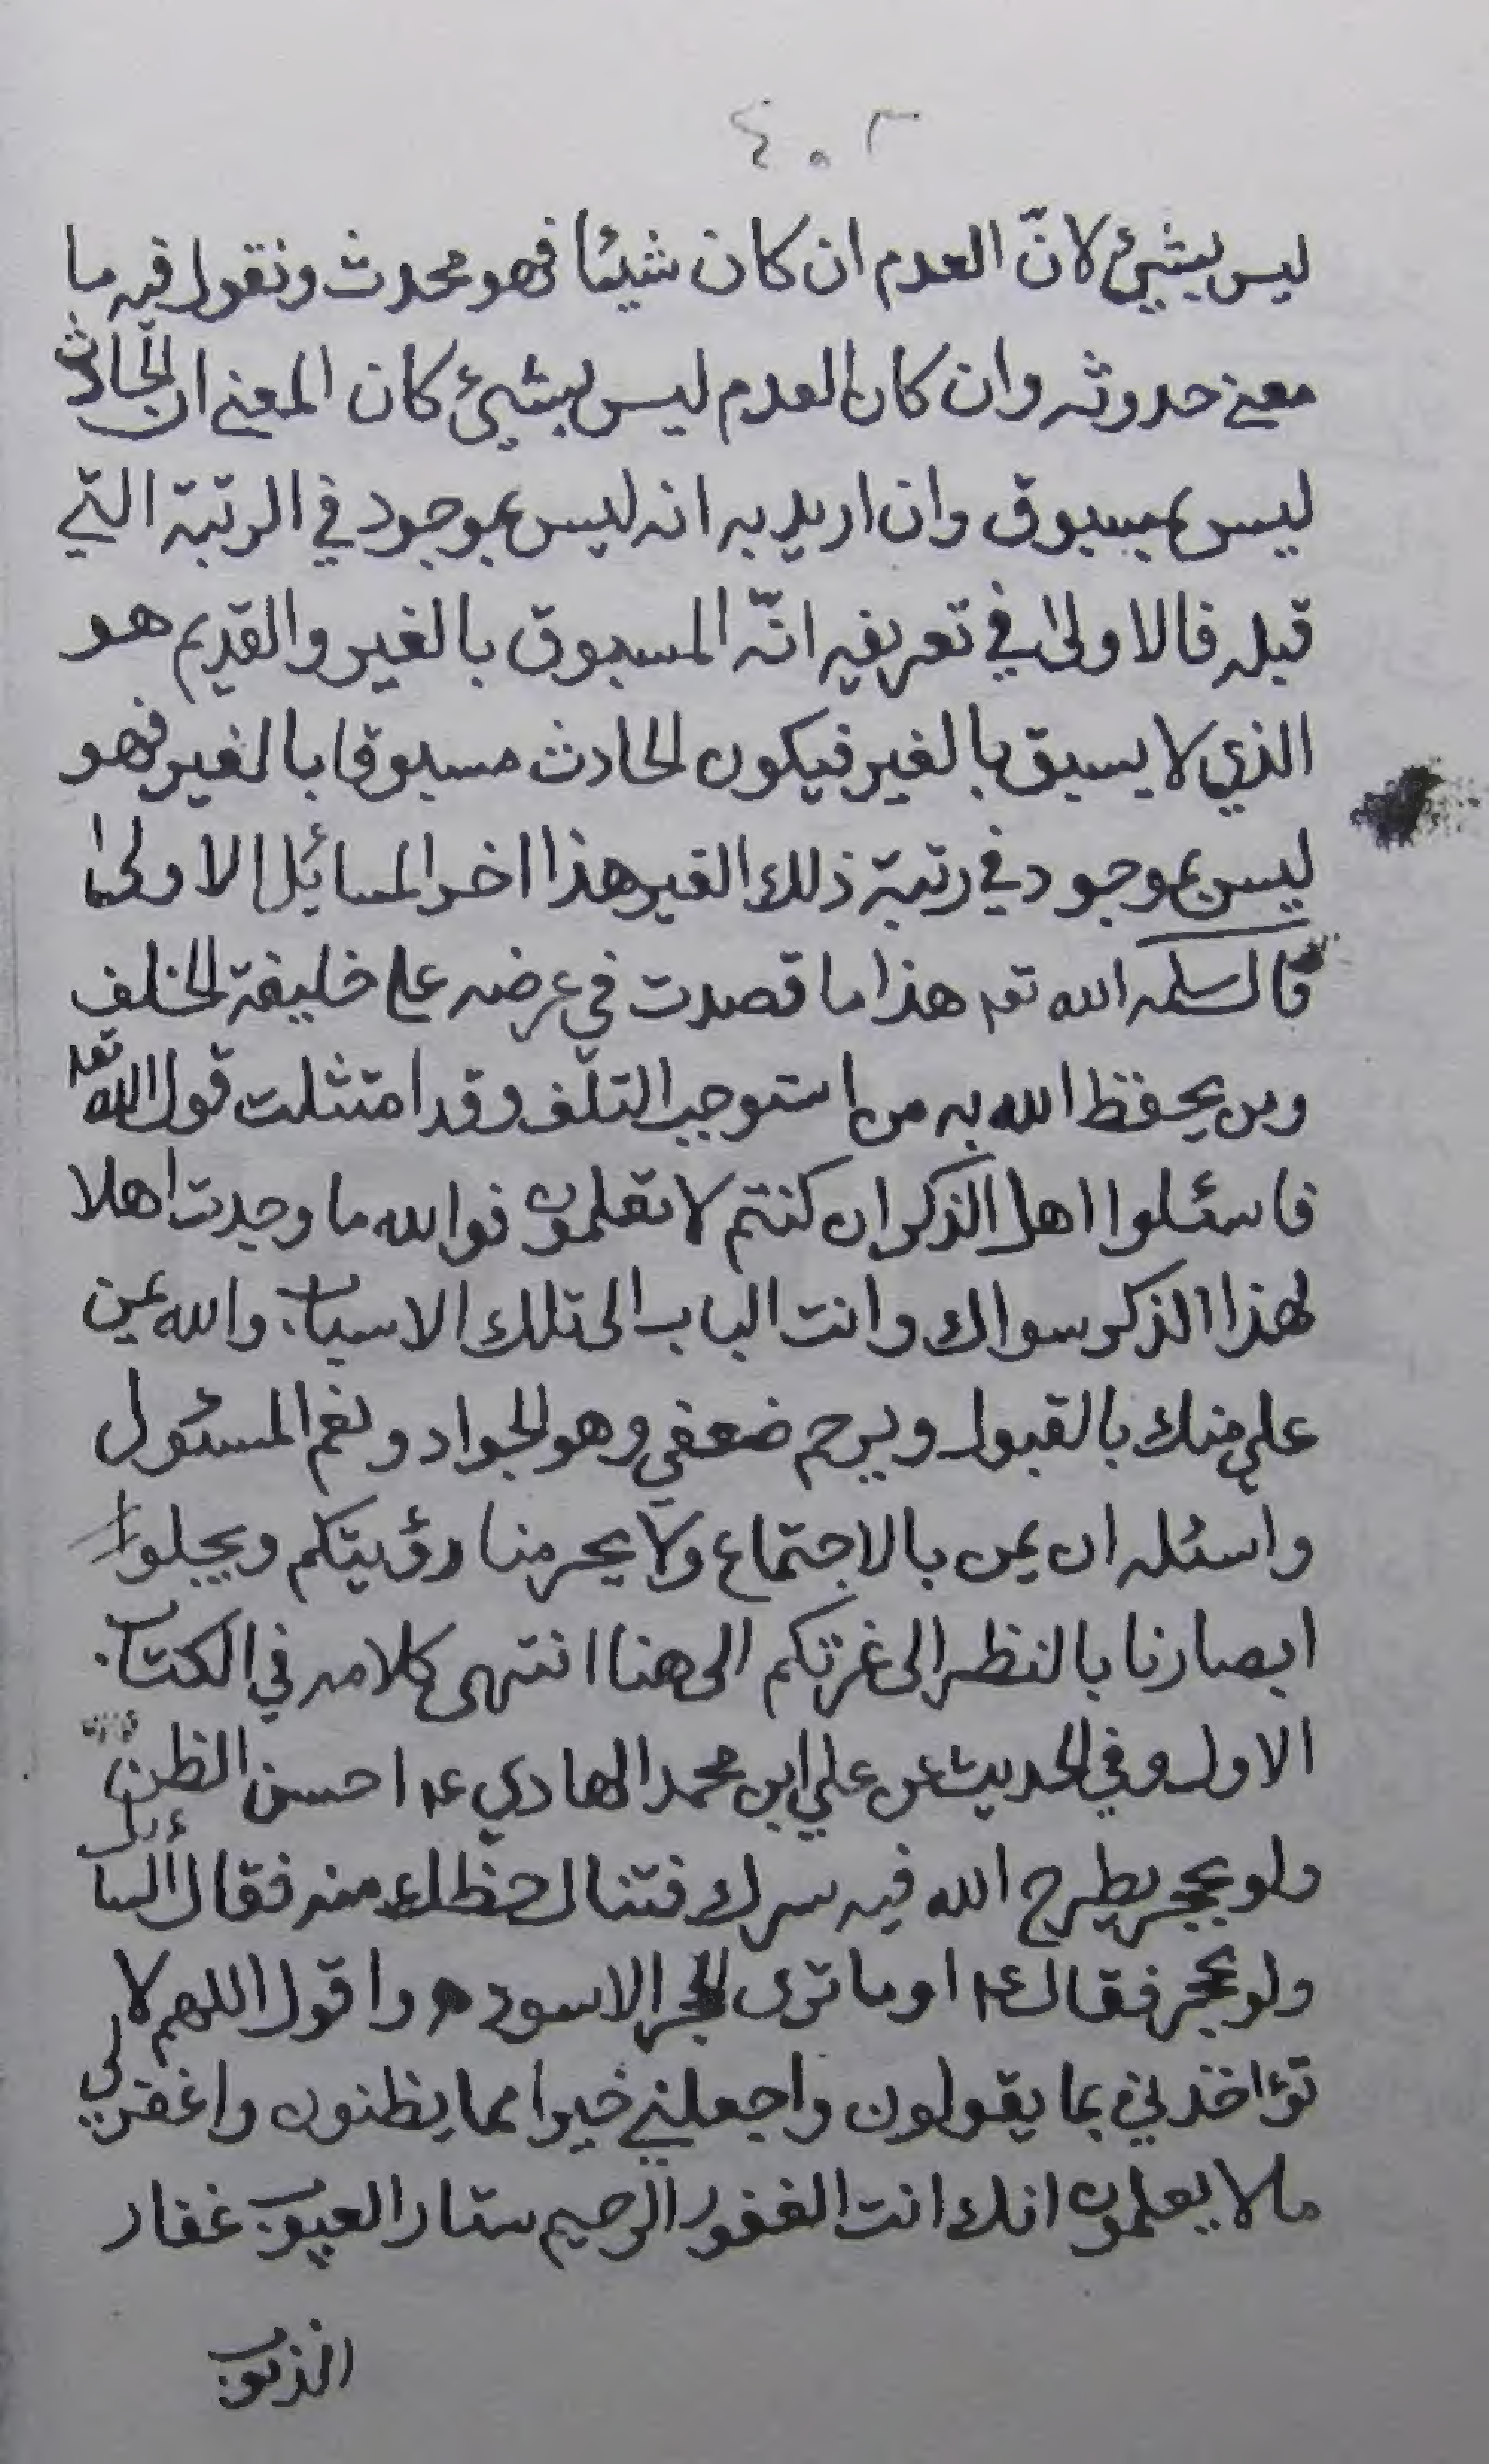 ٤٠٢
ليس بشيئ لانّ العدم ان كان شيئا فهو محدث ونقول فيه ما
معنى حدوثه وان كان العدم ليس بشيئ كان المعنى ان الحادث
ليس بمسبوق وان اريد به انه ليس بموجود في الرتبة التي
قبله فالاولى في تعريفه انّه المسبوق بالغير والقديم هو
الذي لا يسبق بالغير فيكون الحادث مسبوقا بالغير فهو
ليس بموجود في رتبة ذلك الغير هذا اخر المسائل الاولى
قال سلمه الله تعه هذا ما قصدت في عرضه على خليفة الخلف
ومن يحفظ الله به من استوجب التلف وقد امتثلت قول الله تعه
فاسئلوا اهل الذكر ان كنتم لا تعلمون فوالله ما وجدت اهلا
لهذا الذكر سواك وانت الباب الى تلك الاسباب والله يمن
علي منك بالقبول ويرحم ضعفي وهو الجواد ونعم المسئول
واسئله ان يمن بالاجتماع ولا يحرمنا رؤيتكم ويجلوا
ابصارنا بالنظر الى غرتكم الى هنا انتهى كلامه في الكتاب
الاول وفي الحديث عن علي ابن محمد الهادي ع احسن الظن
ولو بحجر يطرح الله فيه سرك فتنال حظك منه فقال السائل
ولو بحجر فقال ع اوما ترى الحجر الاسود ه واقول اللهم لا
تؤاخذني بما يقولون واجعلني خيرا مما يظنون واغفر لي
ما لا يعلمون انك انت الغفور الرحيم ستار العيوب غفار
الذنوب